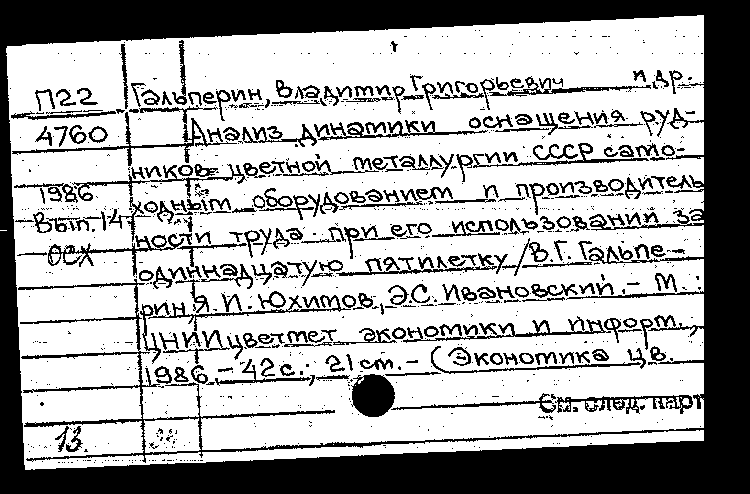 П22 Гальперин, Владимир Григорьевич и др.
4760 Анализ динамики оснащения руд-
ников цветной металлургии СССР само-
1986 ходным оборудованием и производитель
Вып.14 ности труда при его использовании за
ОСХ одиннадцатую пятилетку/В.Г. Гальпе-
рин, Я.И. Юхимов, Э.С. Ивановский.- М.:
ЦНИИцветмет экономики и информ.,
1986.- 42с.; 21см.- (Экономика цв.
См. след. карт
13.